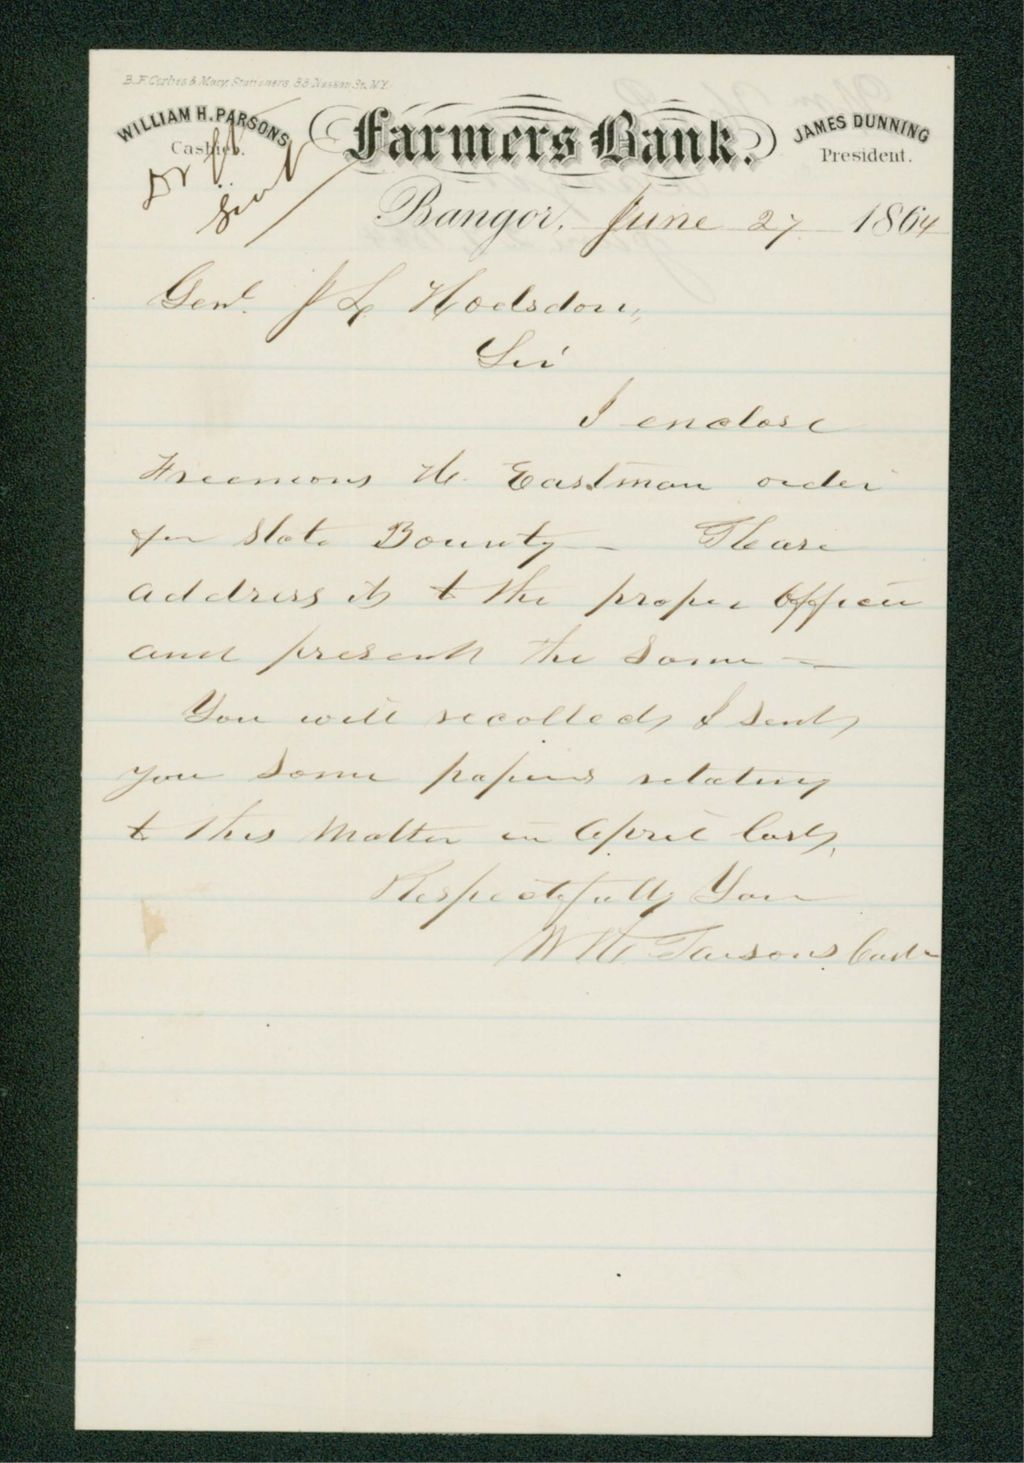 B. F. Corlies & Macy, Stationers, 33 Nassau St. N.Y.
WILLIAM H. PARSONS
Cashier.
Farmers Bank.
JAMES DUNNING
President.
Dr ft
Sent
Bangor, June 27 1864
Genl. J L Hodsdon,
Sir
I enclose
Freemons H. Eastman order
for State Bounty — Please
address it to the proper officer
and present the same —
You will recollect I sent
you some papers relating
to this Matter in April last,
Respectfully Your
W H Parsons Cash